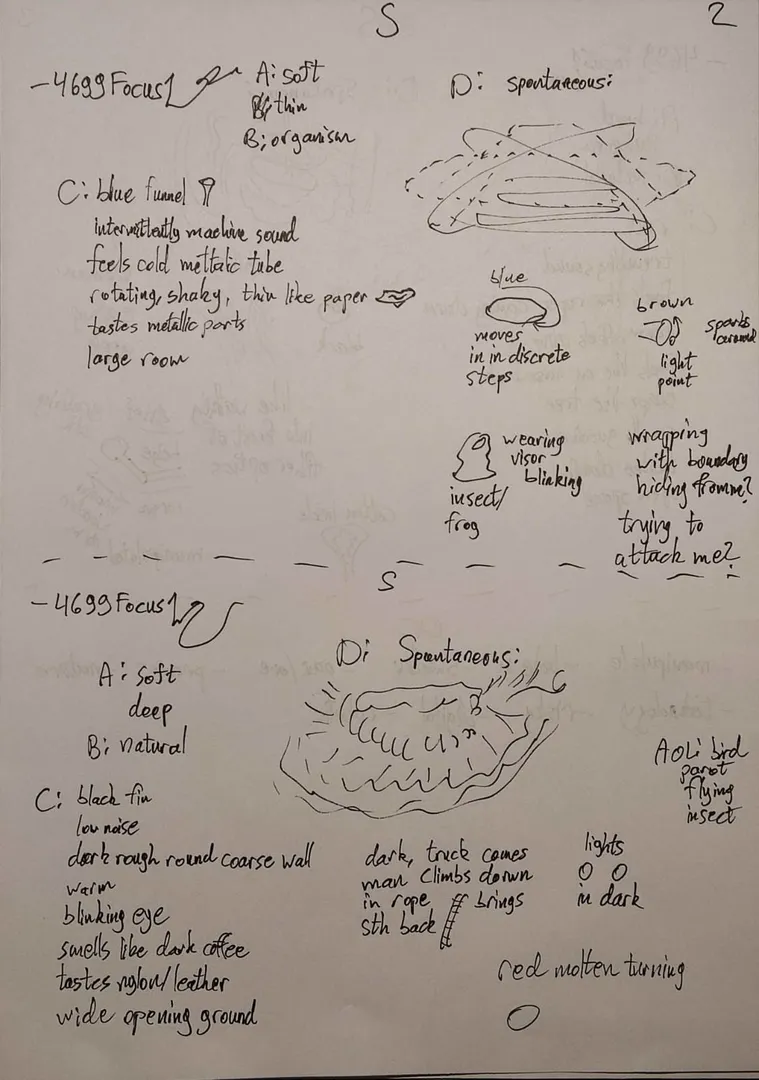 S 2
- 4699 Focus1
A: soft
thin
B: organism
C: blue funnel
intermittently machine sound
feels cold mettalic tube
rotating, shaky, thin like paper
tastes metallic parts
large room
D: spontaneous:
blue
moves
in in discrete
steps
brown
light
point
sparks
around
wearing
visor
blinking
insect/
frog
wrapping
with boundary
hiding from me?
trying to
attack me?
S
- 4699 Focus1
A: soft
deep
B: natural
C: black fin
low noise
dark rough round coarse wall
warm
blinking eye
smells like dark coffee
tastes nylon/leather
wide opening ground
D: Spontaneous:
AOL: bird
parot
flying
insect
dark, truck comes
man climbs down
in rope brings
sth back
lights
in dark
red molten turning